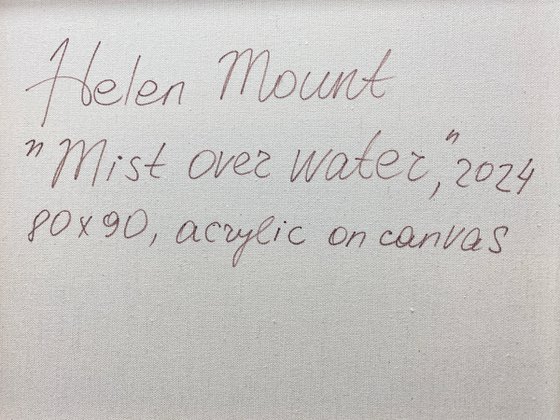 Helen Mount
"Mist over water," 2024
80x90, acrylic on canvas